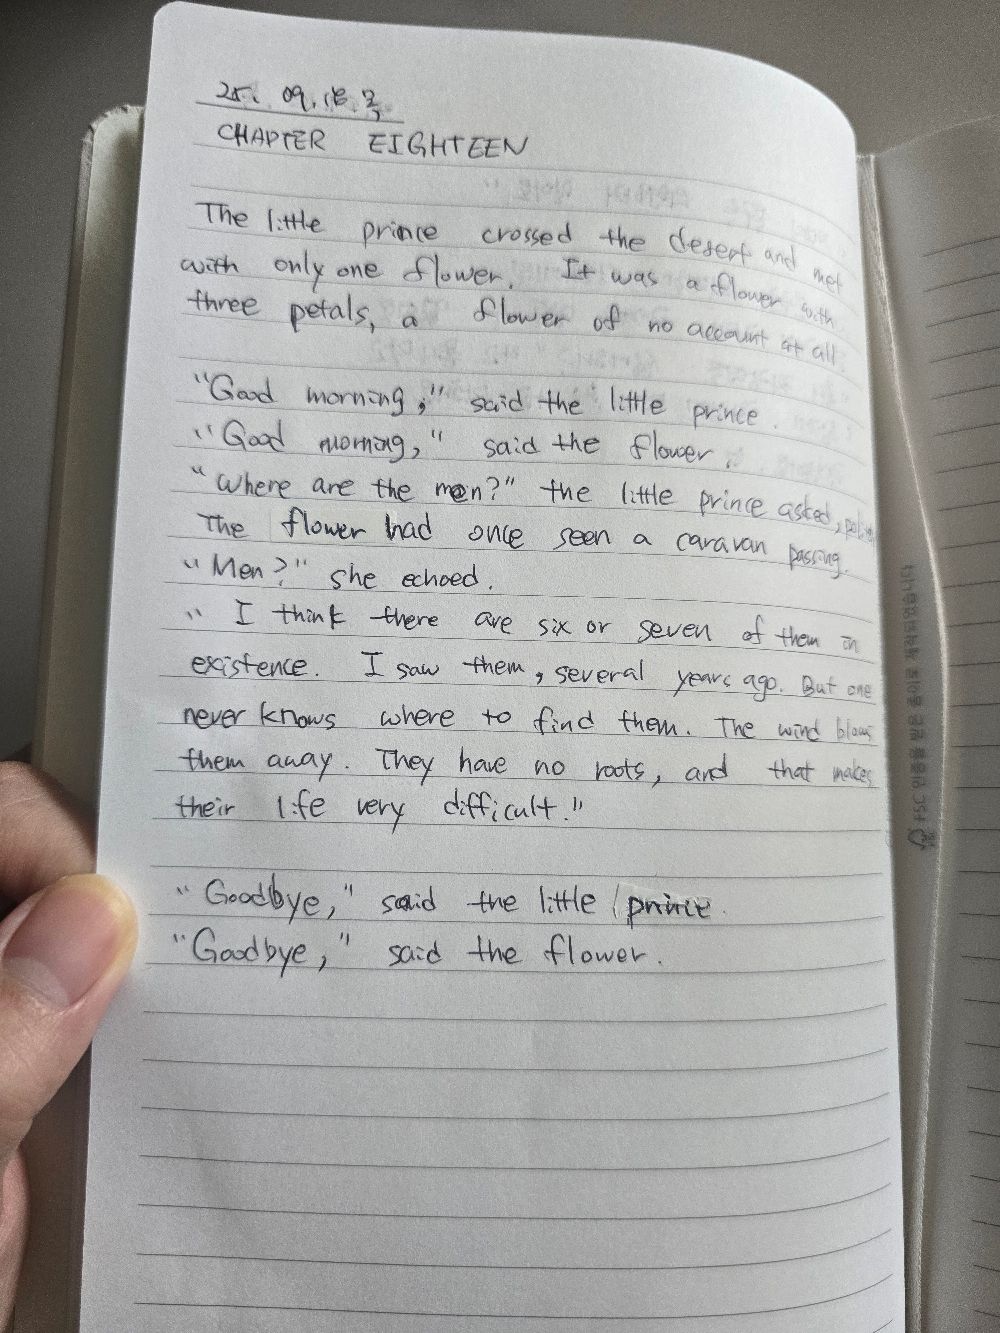 25. 09. 18. 목
CHAPTER EIGHTEEN
The little prince crossed the desert and met
with only one flower. It was a flower with
three petals, a flower of no account at all.
"Good morning," said the little prince.
"Good morning," said the flower.
"Where are the men?" the little prince asked,
The flower had once seen a caravan passing.
"Men?" she echoed.
"I think there are six or seven of them in
existence. I saw them, several years ago. But one
never knows where to find them. The wind blows
them away. They have no roots, and that makes
their life very difficult."
"Goodbye," said the little prince.
"Goodbye," said the flower.